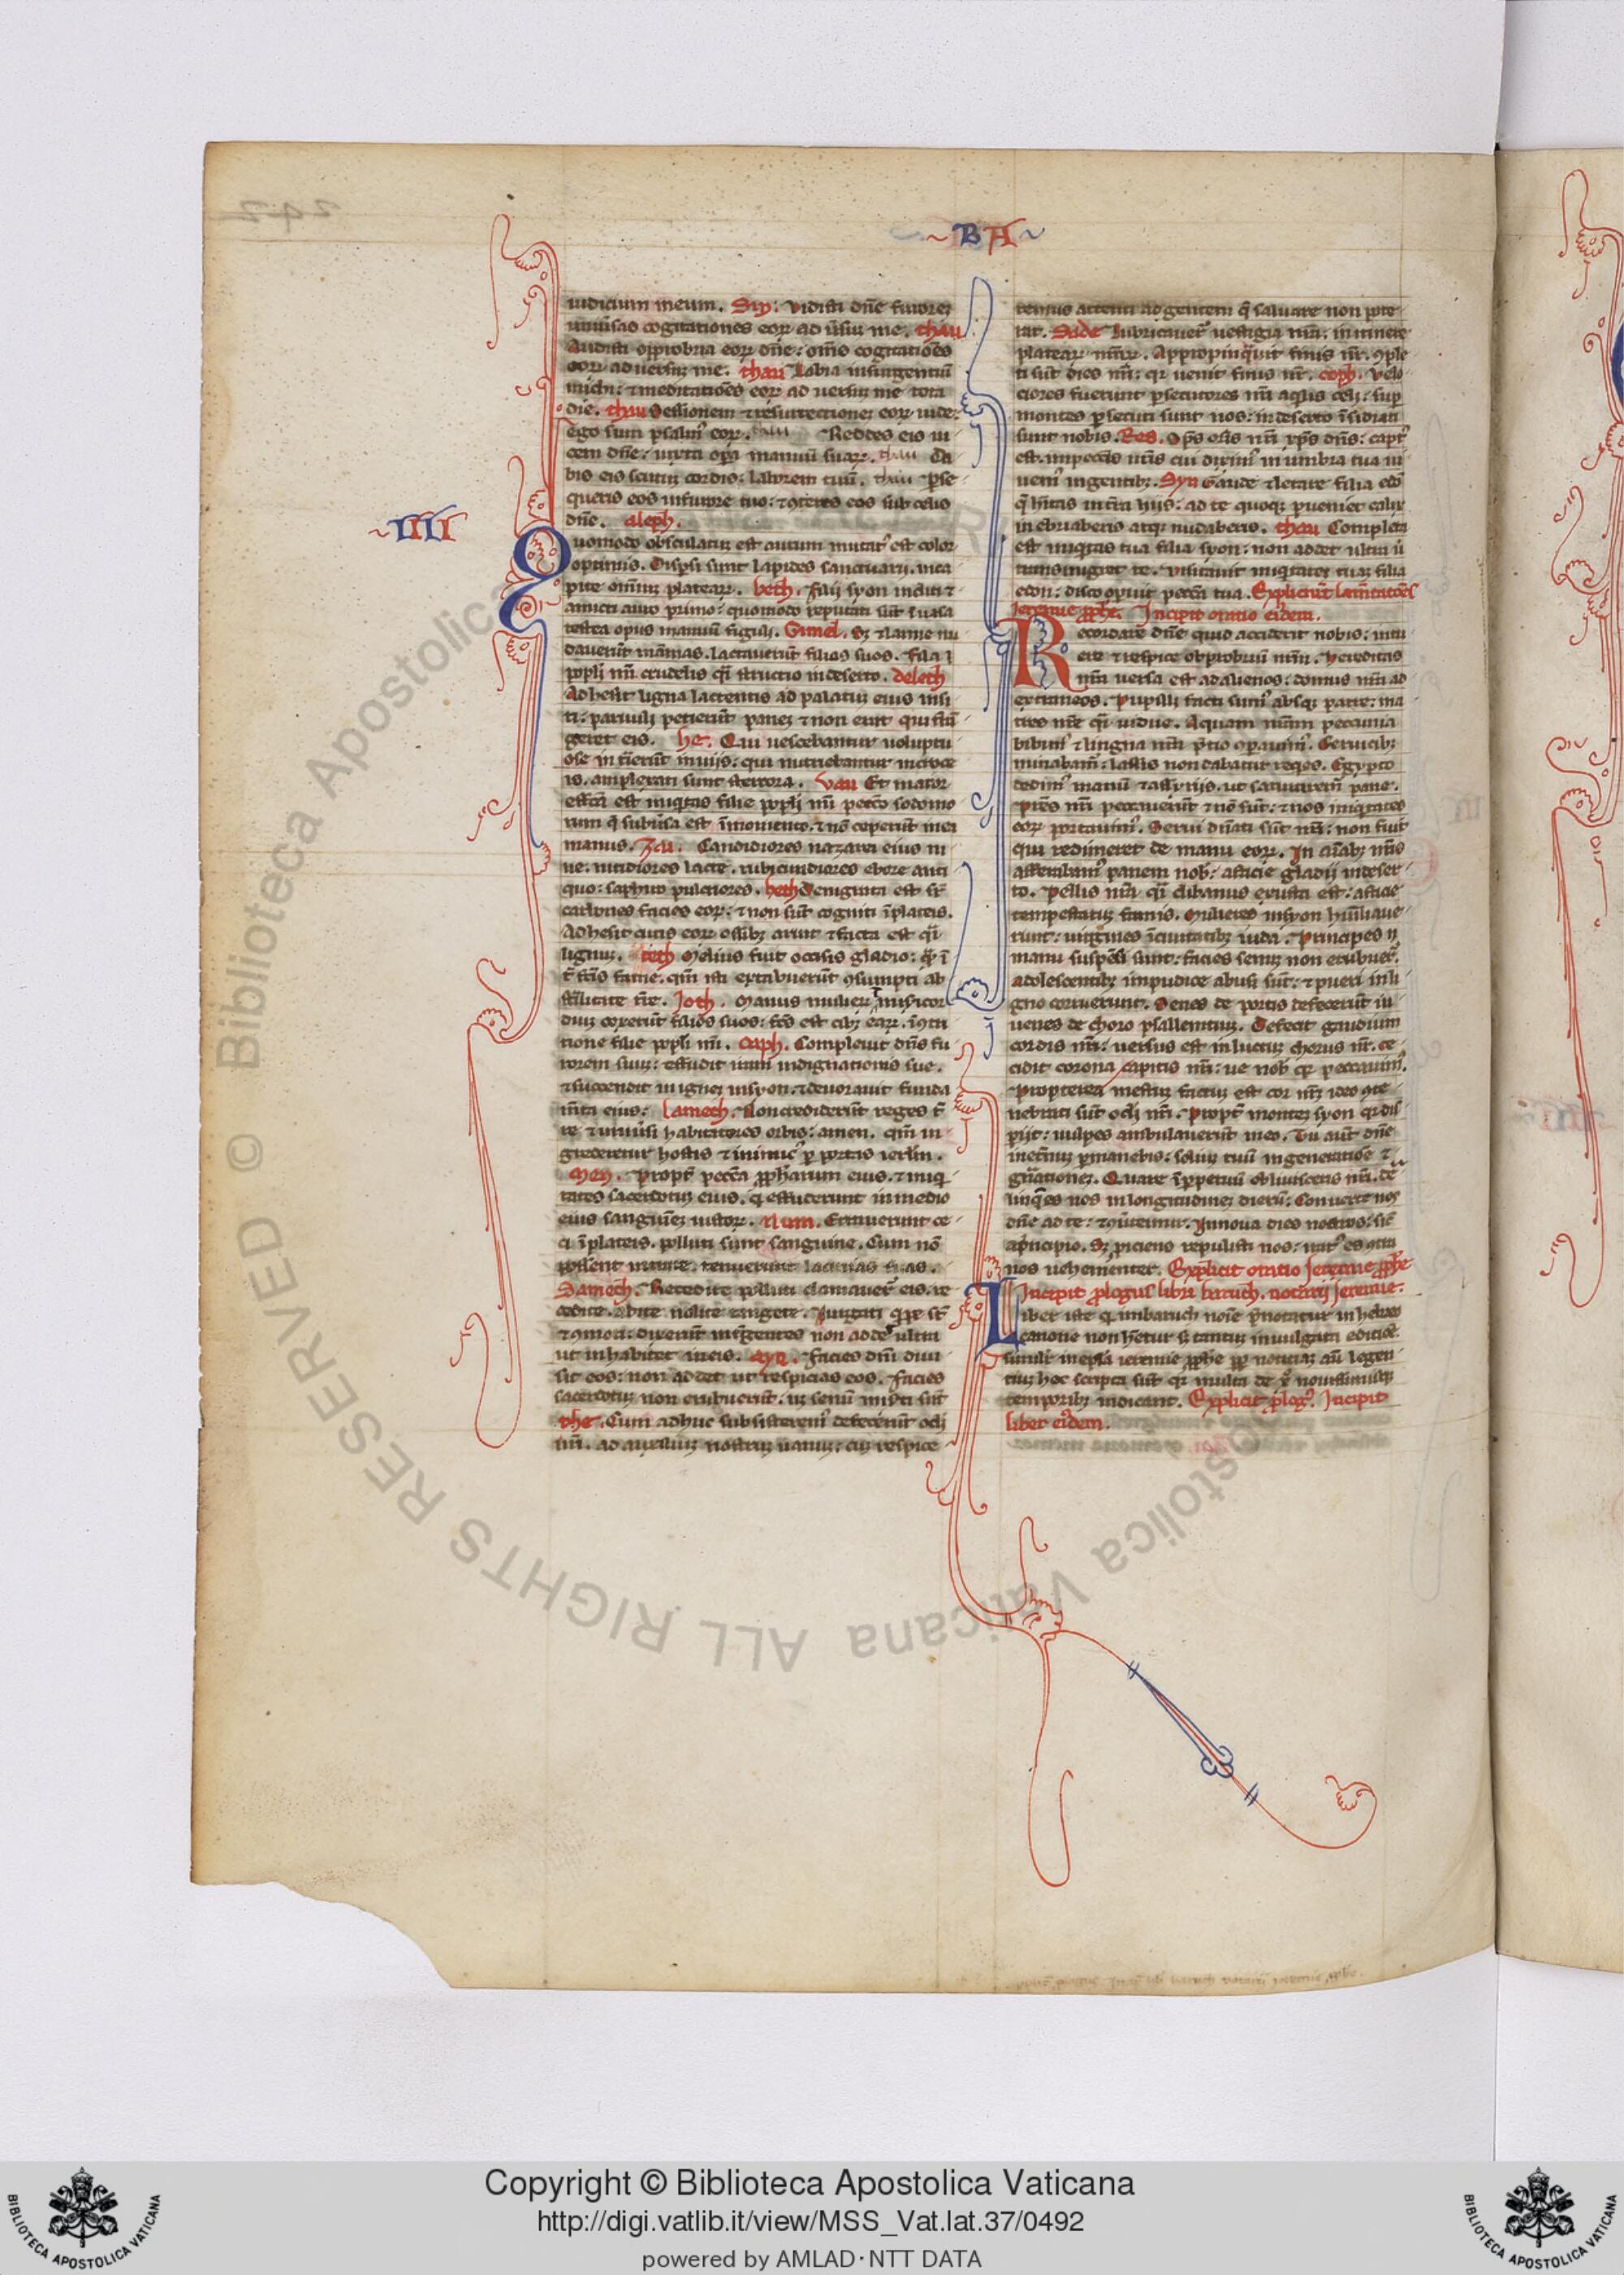 ~ BA ~
iudicium meum. Syn. vidisti dñe furorez
uniũsas cogitationes eorꝝ ad ũsuz me. thau
Audisti opprobria eorꝝ dñe: om̃s cogitatiões
eorꝝ aduersuz me. thau Labia insurgentiũ
michi: ⁊ meditatiões eorꝝ aduersuz me tota
die. thau Sessionem ⁊ resurrectionez eorꝝ uide:
ego sum psalm̾ eorꝝ. thau Reddes eis ui
cem dñe: iuxta opa manuũ suarꝝ. thau Da
bis eis scutuz cordis: laborem tuũ. thau pse
queris eos in furore tuo: ⁊ ꝯteres eos sub celis
dñe. aleph.
~ IIII
Quomodo obscuratuz est aurum mutat̾ est color
optimus. Dispsi sunt lapides sanctuarij. in ca
pite omniuz platearꝝ. beth. filij syon incliti ⁊
amicti auro primo: quomodo reputati sũt ĩ uasa
testea opus manuũ figuli. Gimel. Sꝫ ⁊ lamie nu
dauerũt mãmas. lactauerũt filios suos. filia
popli mĩ crudelis q̃ structio in deserto. deleth
Adhesit ligna lactentis ad palatũ eius in si
ti: paruuli petierũt panez ⁊ non erat qui frã
geret eis. he. Qui uescebantur uoluptu
ose interierũt in uijs: qui nutriebantur in croce
is. amplexati sunt stercora. vau Et maior
effcã est iniqtas filie popli mĩ peccõ sodomo
rum q̃ subũsa est ĩ momento. ⁊ nõ ceperũt in ea
manus. Zai. Candidiores nazarei eius ni
ue. nitidiores lacte. rubicundiores ebore anti
quo: saphiro pulcriores. heth Denigrata est sr̃
carbones facies eorꝝ: ⁊ non sũt cogniti ĩ plateis.
Adhesit cutis eorꝝ ossibꝫ aruit ⁊ facta est q̃i
lignuz. teth Melius fuit occisis gladio: q̃ ĩ
t̃fc̃is fame. qm̃ isti extabuerũt ꝯsumpti ab
st̃ilitate t̃re. Joth. Manus mulierꝝ misicor
diuz coxerũt filios suos: fc̃i sũt cibꝫ earꝝ. ĩ ꝯtri
tione filie popli mĩ. Caph. Compleuit dñs fu
rorem suuz: effudit iram indignationis sue.
⁊ succendit ignez in syon. ⁊ deuorauit funda
mĩta eius. Lamech. Non crediderũt reges t̃
re ⁊ uniũsi habitatores orbis: amen. qm̃ in
grederetur hostis ⁊ inimic̾ p portas ierl̃m.
Mem. Propt̃ peccã pph̃arum eius. ⁊ iniq
tates sacerdotuz eius. q̃ effuderunt in medio
eius sanguinez iustorꝝ. Num. Errauerunt ce
ci ĩ plateis. polluti sunt sanguine. Cum nõ
possent intrare. tenuerunt lacinias suas.
Samech. Recedite polluti clamauer̃t eis. re
cedite. abite nolite tangere. Jurgati quipe st̃
⁊ ꝯmoti: dixerũt int̃ gentes non addet ultra
ut inhabitet in eis. Ayn. Facies dñi diui
sit eos: non addet ut respiciat eos. Facies
sacerdotuz non erubuerũt. nꝫ senũ mis̃ti sũt
Phe. Cum adhuc subsisterem̾ defecerũt oculi
nr̃i. ad auxiliuz nostruz uanuz: cuz respice
remus attenti ad gentem q̃ saluare non pote
rat. Sade Lubricauer̃t uestigia nr̃a: in itinere
platearꝝ nr̃arꝝ. Appropinquit finis nr̃. ꝯple
ti sũt dies nr̃i: qꝛ uenit finis nr̃. coph. Velo
ciores fuerunt psecutores nr̃i aq̃lis celi: sup
montes psecuti sunt nos: in deserto ĩsidiati
sunt nobis. Res. Sps oris nr̃i xp̃s dñs: capt̾
est in peccis nr̃is cui dixim̾ in umbra tua ui
uem̾ in gentibꝫ. Syn Gaude ⁊ letare filia edõ
q̃ hĩtas in t̃ra hijs: ad te quoqꝫ pueniet calix
inebriaberis atqꝫ nudaberis. thau Completa
est iniqtas tua filia syon: non addet ultra ũ
tansmigret te. Visitauit iniqtatez tuaz filia
edon: discoopuit peccã tua. Explicũt lam̃tatões
Jeremie pph̃e. Incipit oratio eĩdem.
Recordare dñe quid acciderit nobis: intu
ere ⁊ respice obprobriũ nr̃m. Hereditas
nr̃a versa est ad alienos: domus nr̃a ad
extraneos. Pupilli facti sum̾ absqꝫ patre: ma
tres nr̃e q̃i uidue. Aquam nr̃am peccunia
bibim̾ ⁊ lingna nr̃a p̃tio ꝯparauim̾. Ceruicibꝫ
minabam̃: lassis non dabatur reqes. Egypto
dedim̾ manũ ⁊ assyrijs. ut saturarem̃ pane.
Pres nr̃i peccauerũt ⁊ nõ sũt: ⁊ nos iniqtates
eorꝝ portauim̾. Serui dñati sũt nr̃i: non fuit
qui redimeret de manu eorꝝ. In aĩabꝫ nr̃is
afferebam̾ panem nob: a facie gladij in deser
to. Pellis nr̃a q̃i clibanus exusta est: a facie
tempestatuz famis. Mulieres in syon hũiliaue
runt: uirgines ĩ ciuitatibꝫ iuda. Principes ĩ
manu suspẽsi sunt: facies senuz non erubuer̃.
adolescentibꝫ impudice abusi sũt: ⁊ pueri in li
gno corruerunt. Senes de portis defecerũt iu
uenes de choro psallentiuz. Defecit gaudium
cordis nr̃i: uersus est in luctuz chorus nr̃. ce
cidit corona capitis nr̃i: ue nob qꝛ peccauim̾.
Propterea mestuz factuz est cor nr̃m ideo ꝯte
nebrati sũt oculi nr̃i. Propt̃ montez syon qꝛ dis
pijt: uulpes ambulauerũt in eo. Tu aũt dñe
in etnuz pmanebis: soliuz tuũ in generatiõe ⁊
gñationez. Quare ĩ ppetuũ obliuisceris nr̃i. de
linqes nos in longitudinez dierũ: Conuerte nos
dñe ad te: ⁊ ꝯũtemur. Innoua dies nostros: sic̃
a principio. Sꝫ piciens repulisti nos: irat̾ es ꝯtra
nos uehementer. Explicit oratio Jeremie pph̃e
Incipit plogus libri baruch. notarij Jeremie.
Liber iste q̃ in baruch noĩe p̃notatur in hebreo
canone non hetur sꝫ tantuz in uulgata editiõe.
simil̃r in ep̃la ieremie pph̃e pp notitiaz aũ legen
tiuz hic scripta sũt qꝛ multa de xp̃ nouissimisqꝫ
temporibꝫ indicant. Explicit plog̾. Incipit
liber eĩdem.
Biblioteca Apostolica Vaticana ALL RIGHTS RESERVED ©
Copyright © Biblioteca Apostolica Vaticana
http://digi.vatlib.it/view/MSS_Vat.lat.37/0492
powered by AMLAD·NTT DATA
BIBLIOTECA APOSTOLICA VATICANA
BIBLIOTECA APOSTOLICA VATICANA